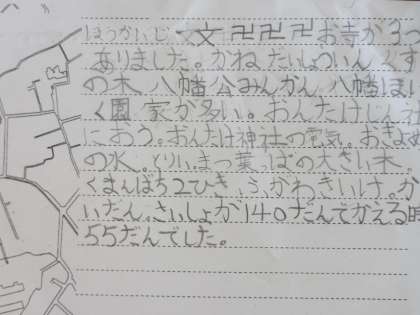 ほうかいじ 文 卍卍卍お寺が3つ
ありました。かねたいしょういん くす
の木 八幡公みんかん。八幡ほい
く園 家が多い。おんたけじん社
におう。おんたけ神社の電気。おきよめ
の水。とりい。まつ葉 っぱの大きい木。
くまんばち2ひき ふ がわきいけ。か
いだん。さいしょが140だんでかえる時
55だんでした。